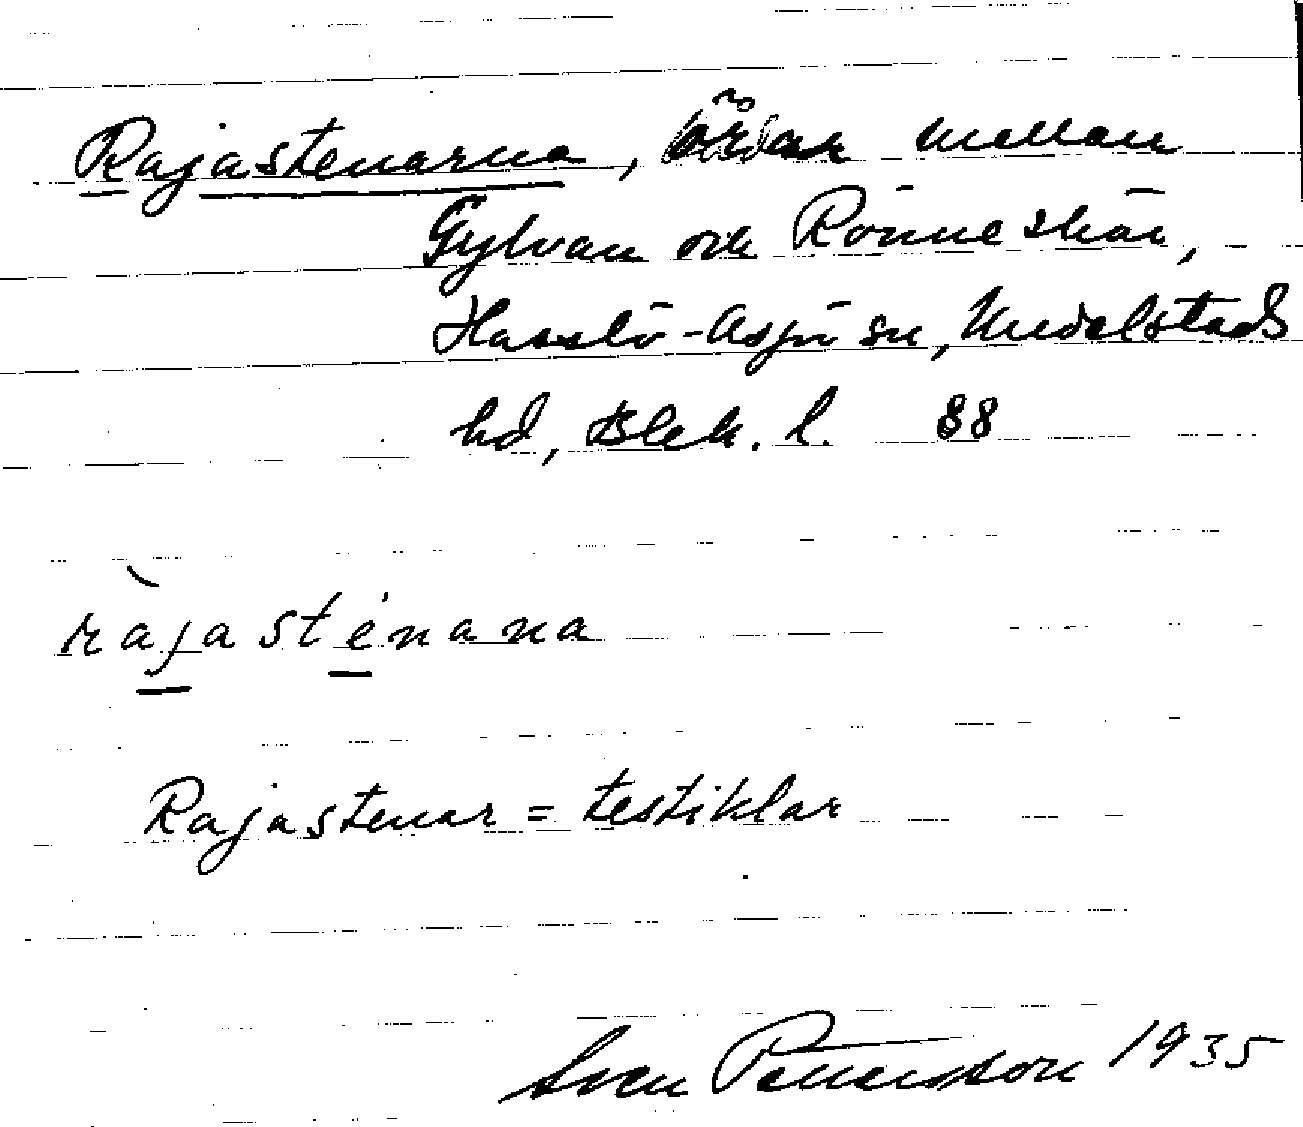 Rajastenarna, öar mellan
Gylvan och Rönneskär,
Hasslö-Aspö sn, Medelstads
hd, Blek. l. 88
ràjasténana
Rajastenar = testiklar
Sven Pettersson 1935